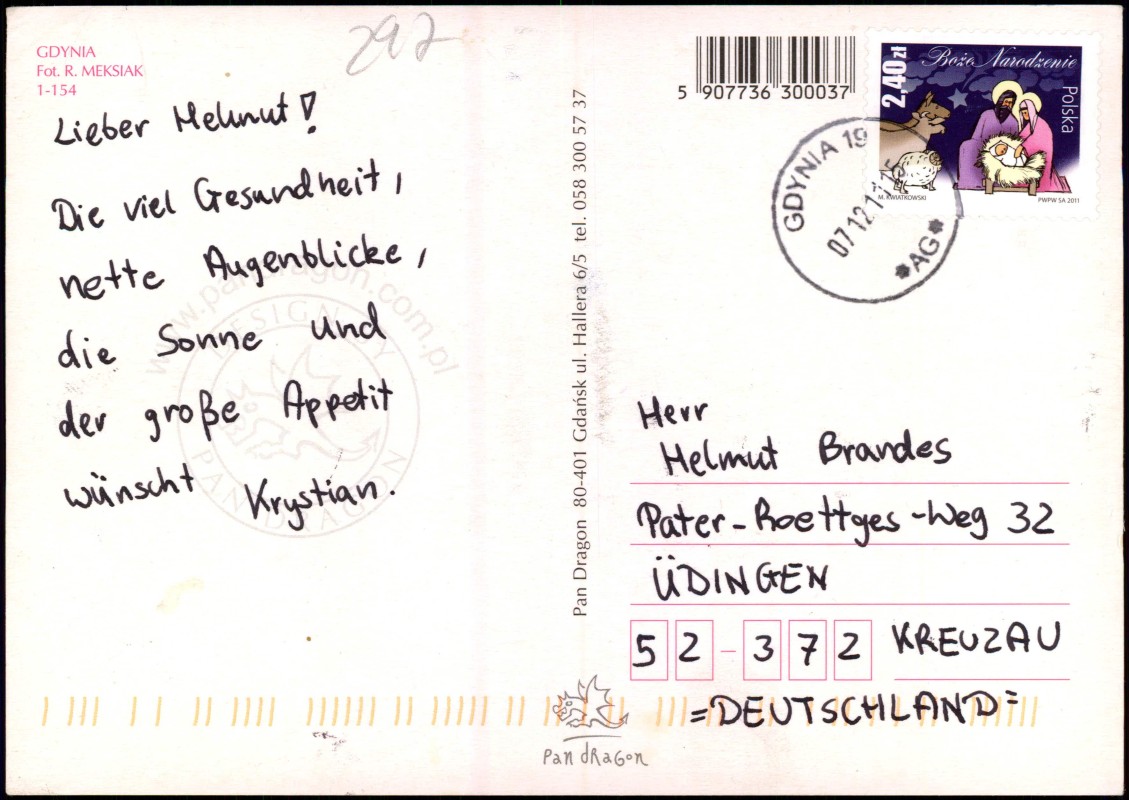 GDYNIA
Fot. R. MEKSIAK
1-154
297
Lieber Helmut!
Die viel Gesundheit,
nette Augenblicke,
die Sonne und
der große Appetit
wünscht Krystian.
www.pandragon.com.pl
DESIGN BY
PAN DRAGON
Pan Dragon 80-401 Gdańsk ul. Hallera 6/5 tel. 058 300 57 37
5 907736 300037
2,40 zł
Boże Narodzenie
Polska
M. KWIATKOWSKI
PWPW SA 2011
GDYNIA 19
07 12 11
*AG*
Herr
Helmut Brandes
Pater-Roettges-Weg 32
ÜDINGEN
52-372 KREUZAU
=DEUTSCHLAND=
pan dRagon